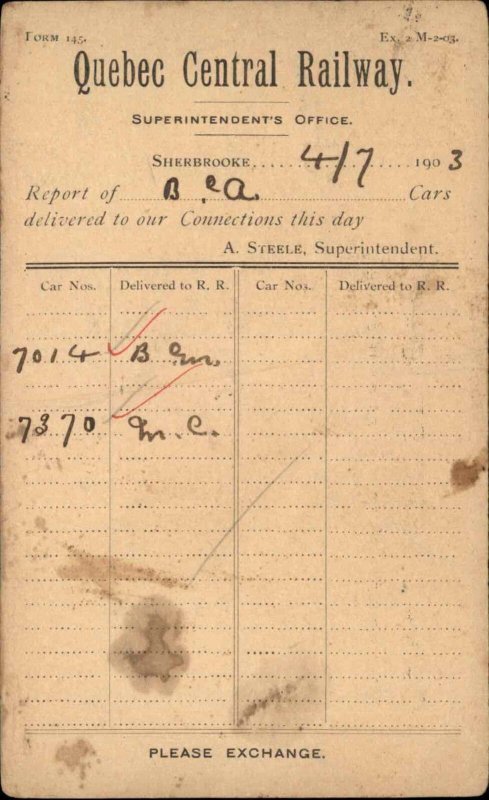 Form 145. Ex. 2 M-2-03.
Quebec Central Railway.
Superintendent's Office.
Sherbrooke.... 4/7 1903
Report of B & A. Cars
delivered to our Connections this day
A. Steele, Superintendent.
Car Nos. Delivered to R. R. Car Nos. Delivered to R. R.
7014 B M.
7370 M. C.
PLEASE EXCHANGE.